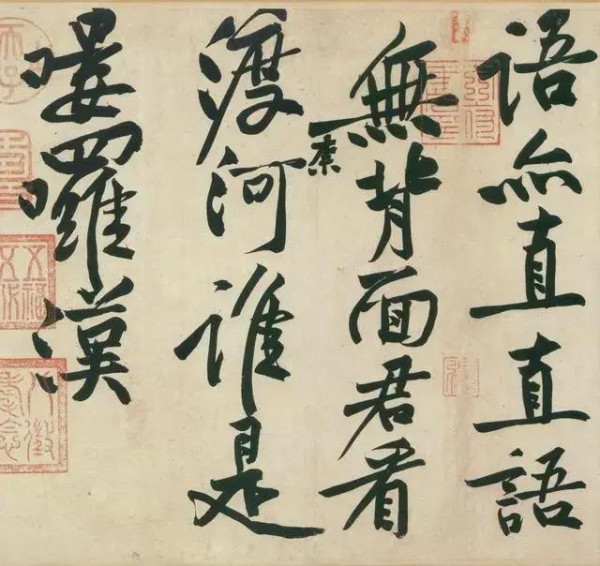 語亦直直語
無背面君看
渡奈河誰是
嘍囉漢